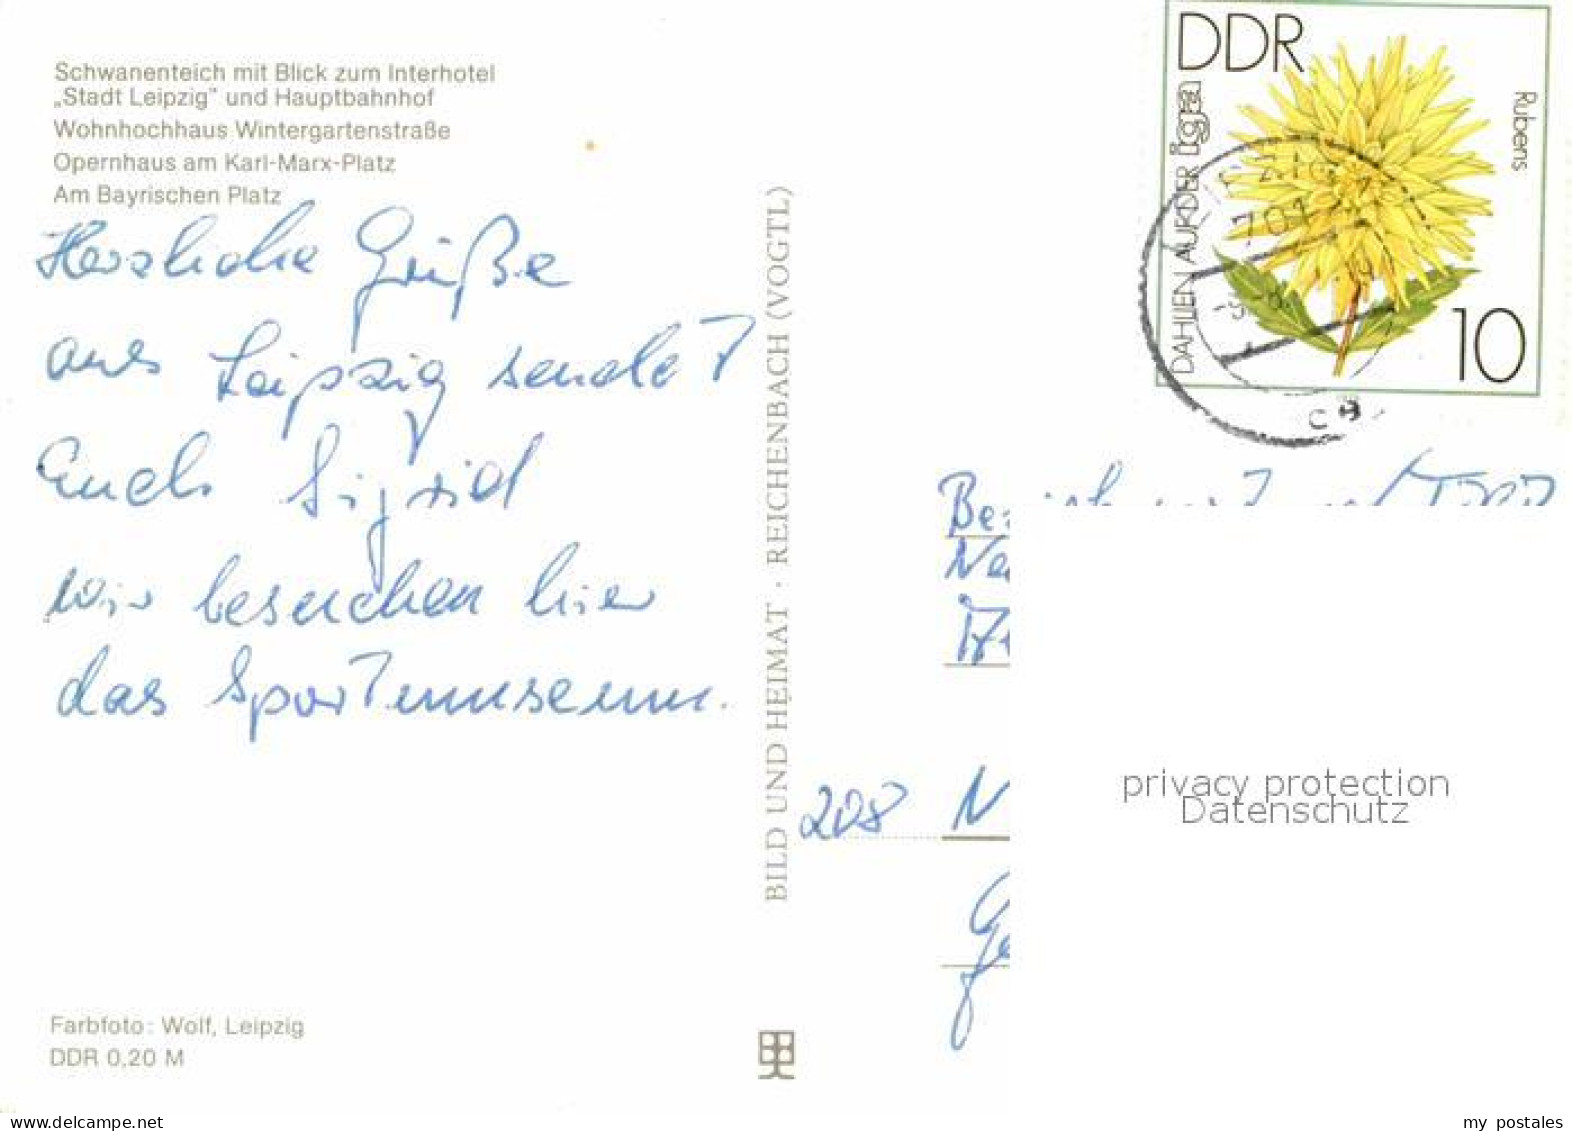 Schwanenteich mit Blick zum Interhotel
„Stadt Leipzig" und Hauptbahnhof
Wohnhochhaus Wintergartenstraße
Opernhaus am Karl-Marx-Platz
Am Bayrischen Platz
Herzliche Grüße
aus Leipzig sendet
Euch Sigrid
wir besuchen hier
das Sportmuseum.
Farbfoto: Wolf, Leipzig
DDR 0,20 M
BILD UND HEIMAT · REICHENBACH (VOGTL)
DDR
DAHLIEN AUF DER iga
Rubens
10
701
208 N
privacy protection
Datenschutz
www.delcampe.net
my_postales